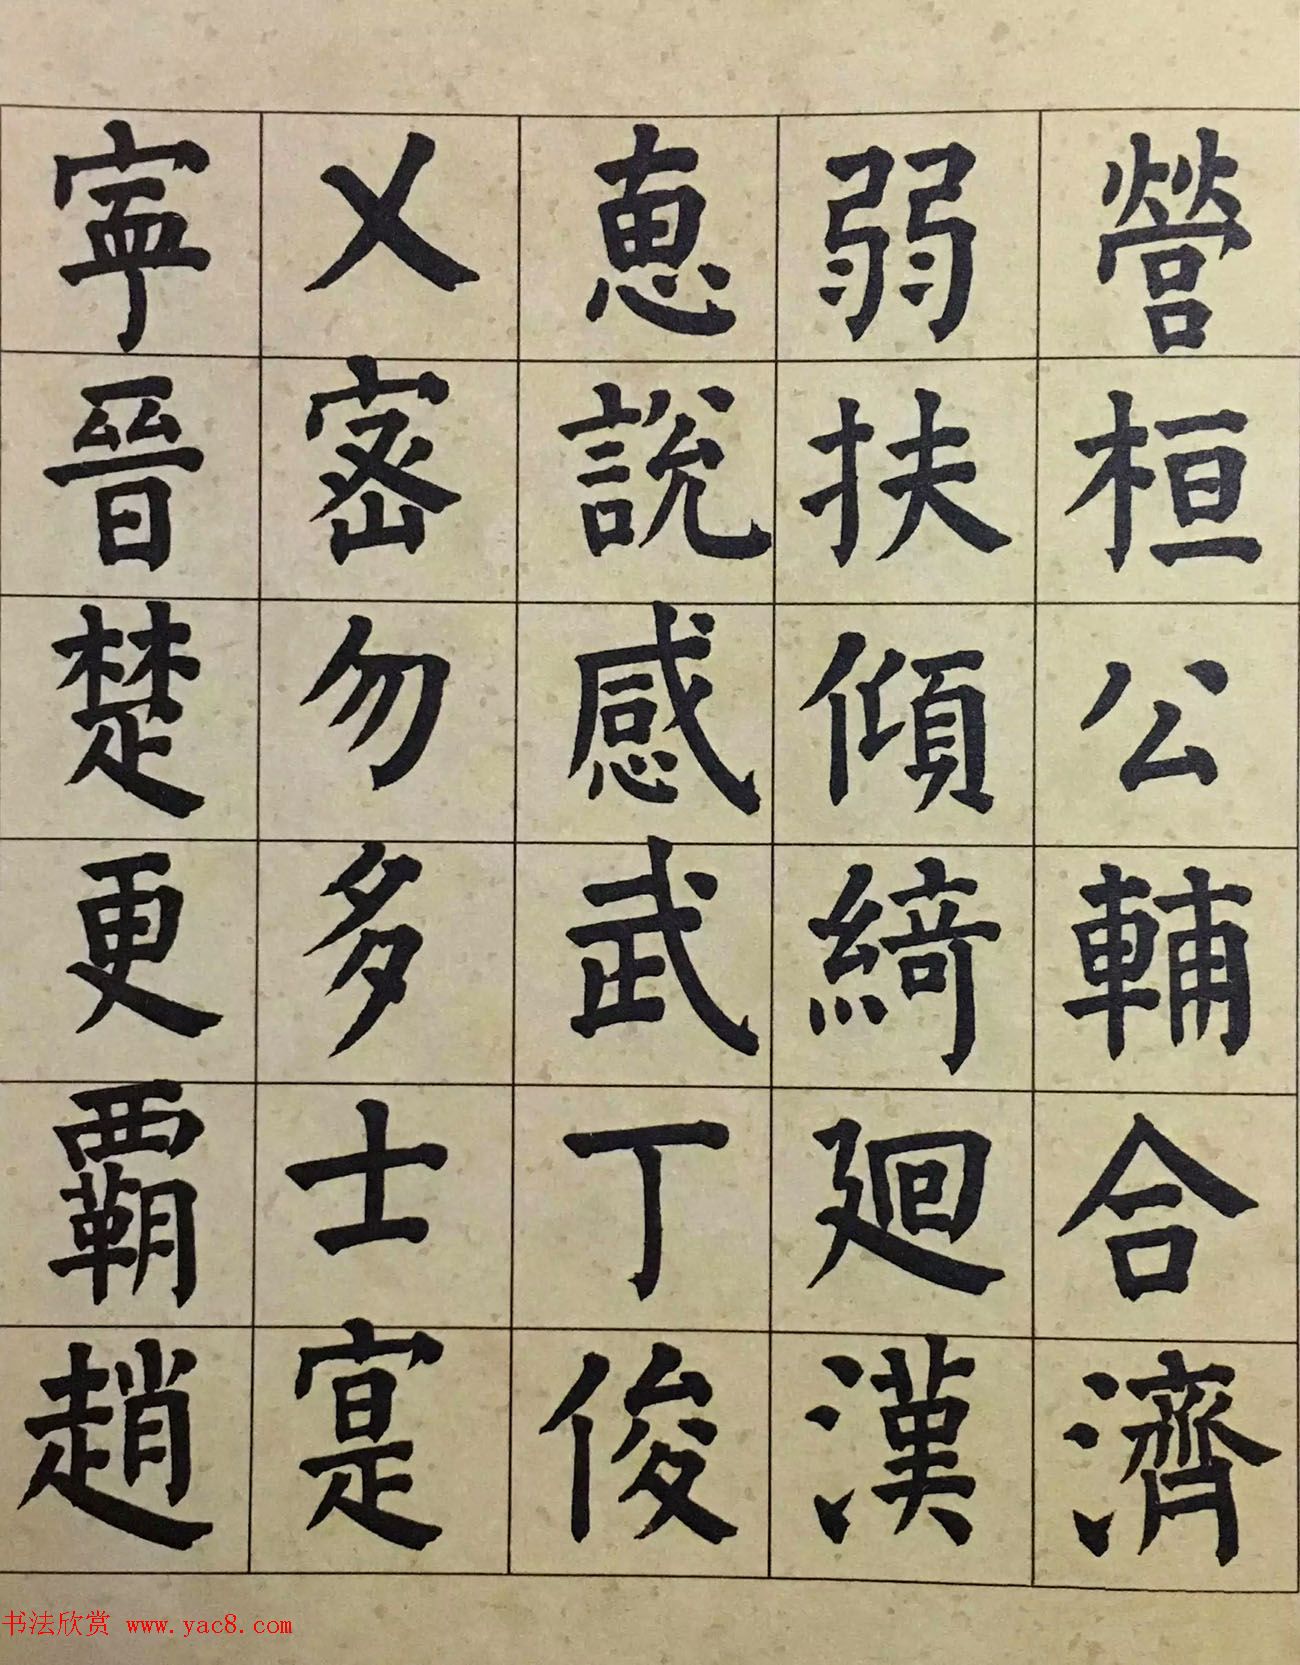 營桓公輔合濟
弱扶傾綺廻漢
恵說感武丁俊
乂密勿多士寔
寧晉楚更覇趙
书法欣赏 www.yac8.com